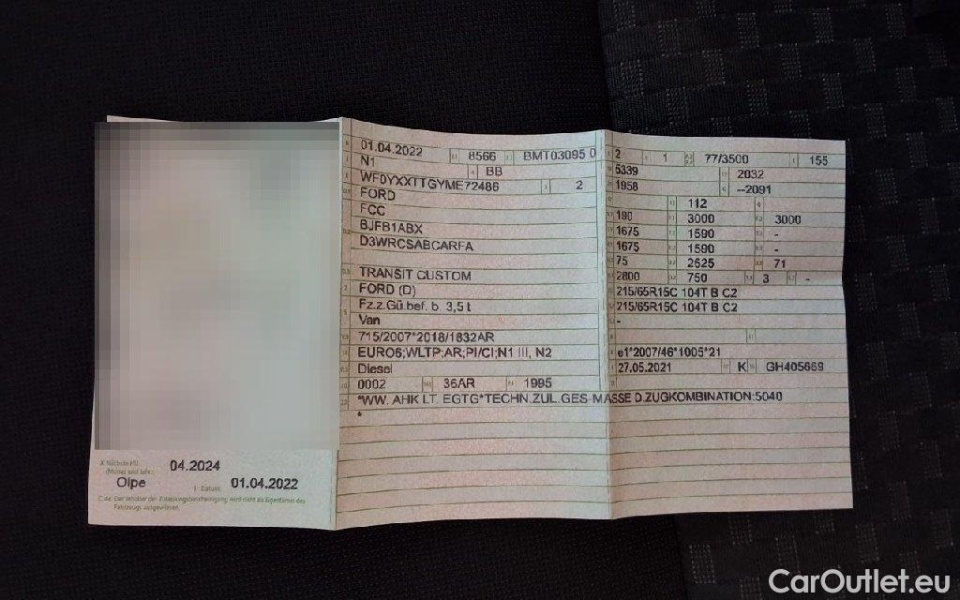 04.2024
Olpe
01.04.2022
C.4c: Der Inhaber der Zulassungsbescheinigung wird nicht als Eigentümer des
Fahrzeugs ausgewiesen.
01.04.2022 8566 BMT03095 0
N1 BB
WF0YXXTTGYME72486 2
FORD
FCC
BJFB1ABX
D3WRCSABCARFA
TRANSIT CUSTOM
FORD (D)
Fz.z.Gü.bef. b. 3,5 t
Van
715/2007*2018/1832AR
EURO6;WLTP;AR;PI/CI;N1 III, N2
Diesel
0002 36AR 1995
*WW. AHK LT. EGTG*TECHN.ZUL.GES-MASSE D.ZUGKOMBINATION:5040
*
2 1 77/3500 155
5339 2032
1958 --2091
112
190 3000 3000
1675 1590 -
1675 1590 -
75 2525 71
2800 750 3 -
215/65R15C 104T B C2
215/65R15C 104T B C2
-
e1*2007/46*1005*21
27.05.2021 K GH405669
CarOutlet.eu